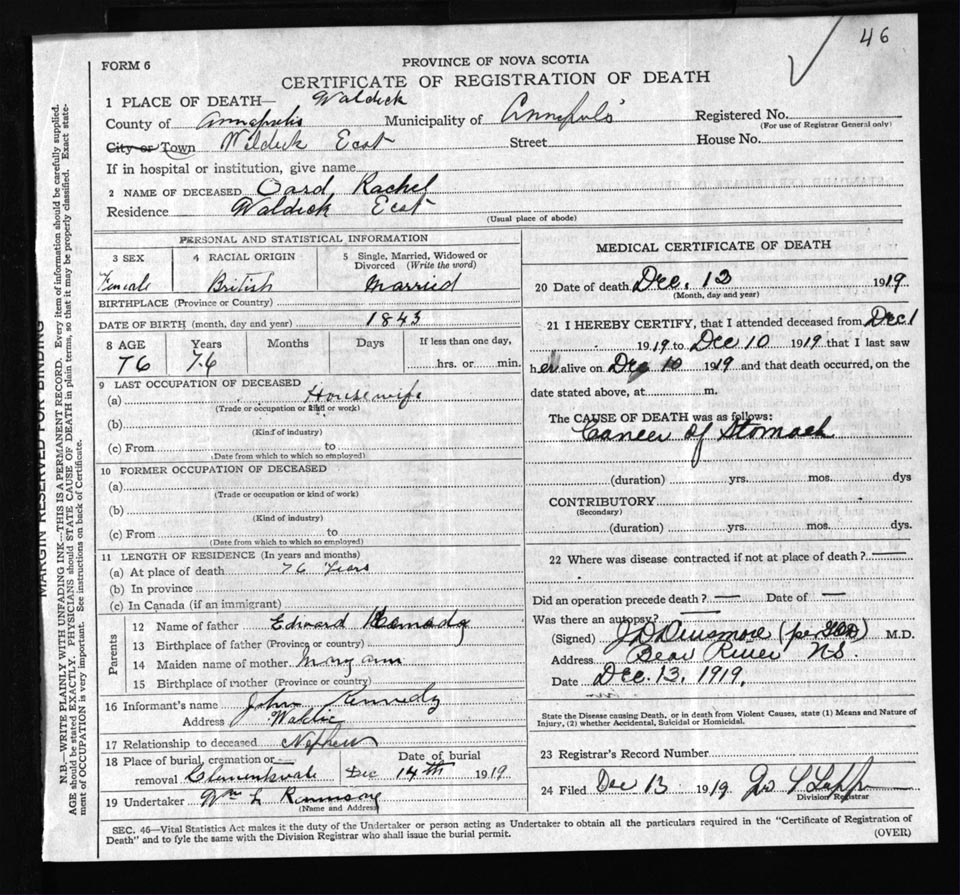 46
FORM 6
PROVINCE OF NOVA SCOTIA
CERTIFICATE OF REGISTRATION OF DEATH
1 PLACE OF DEATH— Waldick
County of Annapolis Municipality of Annapolis Registered No.
(For use of Registrar General only)
City or Town Waldick East Street House No.
If in hospital or institution, give name
2 NAME OF DECEASED Oard, Rachel
Residence Waldick East
(Usual place of abode)
PERSONAL AND STATISTICAL INFORMATION
3 SEX 4 RACIAL ORIGIN 5 Single, Married, Widowed or Divorced (Write the word)
Female British Married
BIRTHPLACE (Province or Country)
DATE OF BIRTH (month, day and year) 1843
8 AGE Years Months Days If less than one day,
76 76 hrs. or min.
9 LAST OCCUPATION OF DECEASED
(a) Housewife
(Trade or occupation or kind or work)
(b)
(Kind of industry)
(c) From to
(Date from which to which so employed)
10 FORMER OCCUPATION OF DECEASED
(a)
(Trade or occupation or kind of work)
(b)
(Kind of industry)
(c) From to
(Date from which to which so employed)
11 LENGTH OF RESIDENCE (In years and months)
(a) At place of death 76 Years
(b) In province
(c) In Canada (if an immigrant)
Parents
12 Name of father Edward
13 Birthplace of father (Province or country)
14 Maiden name of mother Mary ann
15 Birthplace of mother (Province or country)
16 Informant's name John Kennedy
Address
17 Relationship to deceased Nephew
18 Place of burial, cremation or Date of burial
removal Clementsvale Dec 14th 1919
19 Undertaker Wm L
(Name and Address)
MEDICAL CERTIFICATE OF DEATH
20 Date of death Dec. 12 1919
(Month, day and year)
21 I HEREBY CERTIFY, that I attended deceased from Dec 1
1919 to Dec 10 1919 that I last saw
her alive on Dec 10 1919 and that death occurred, on the
date stated above, at m.
The CAUSE OF DEATH was as follows:
Cancer of Stomach
(duration) yrs. mos. dys
CONTRIBUTORY
(Secondary)
(duration) yrs. mos. dys.
22 Where was disease contracted if not at place of death? —
Did an operation precede death? — Date of —
Was there an autopsy? —
(Signed) M.D.
Address Bear River N-S.
Date Dec. 13, 1919.
State the Disease causing Death, or in death from Violent Causes, state (1) Means and Nature of
Injury, (2) whether Accidental, Suicidal or Homicidal.
23 Registrar's Record Number
24 Filed Dec 13 1919
Division Registrar
SEC. 46—Vital Statistics Act makes it the duty of the Undertaker or person acting as Undertaker to obtain all the particulars required in the "Certificate of Registration of
Death" and to fyle the same with the Division Registrar who shall issue the burial permit.
(OVER)
MARGIN RESERVED FOR BINDING
N.B.—WRITE PLAINLY WITH UNFADING INK—THIS IS A PERMANENT RECORD. Every item of information should be carefully supplied.
AGE should be stated EXACTLY. PHYSICIANS should STATE CAUSE OF DEATH in plain terms, so that it may be properly classified. Exact state-
ment of OCCUPATION is very important. See instructions on back of Certificate.